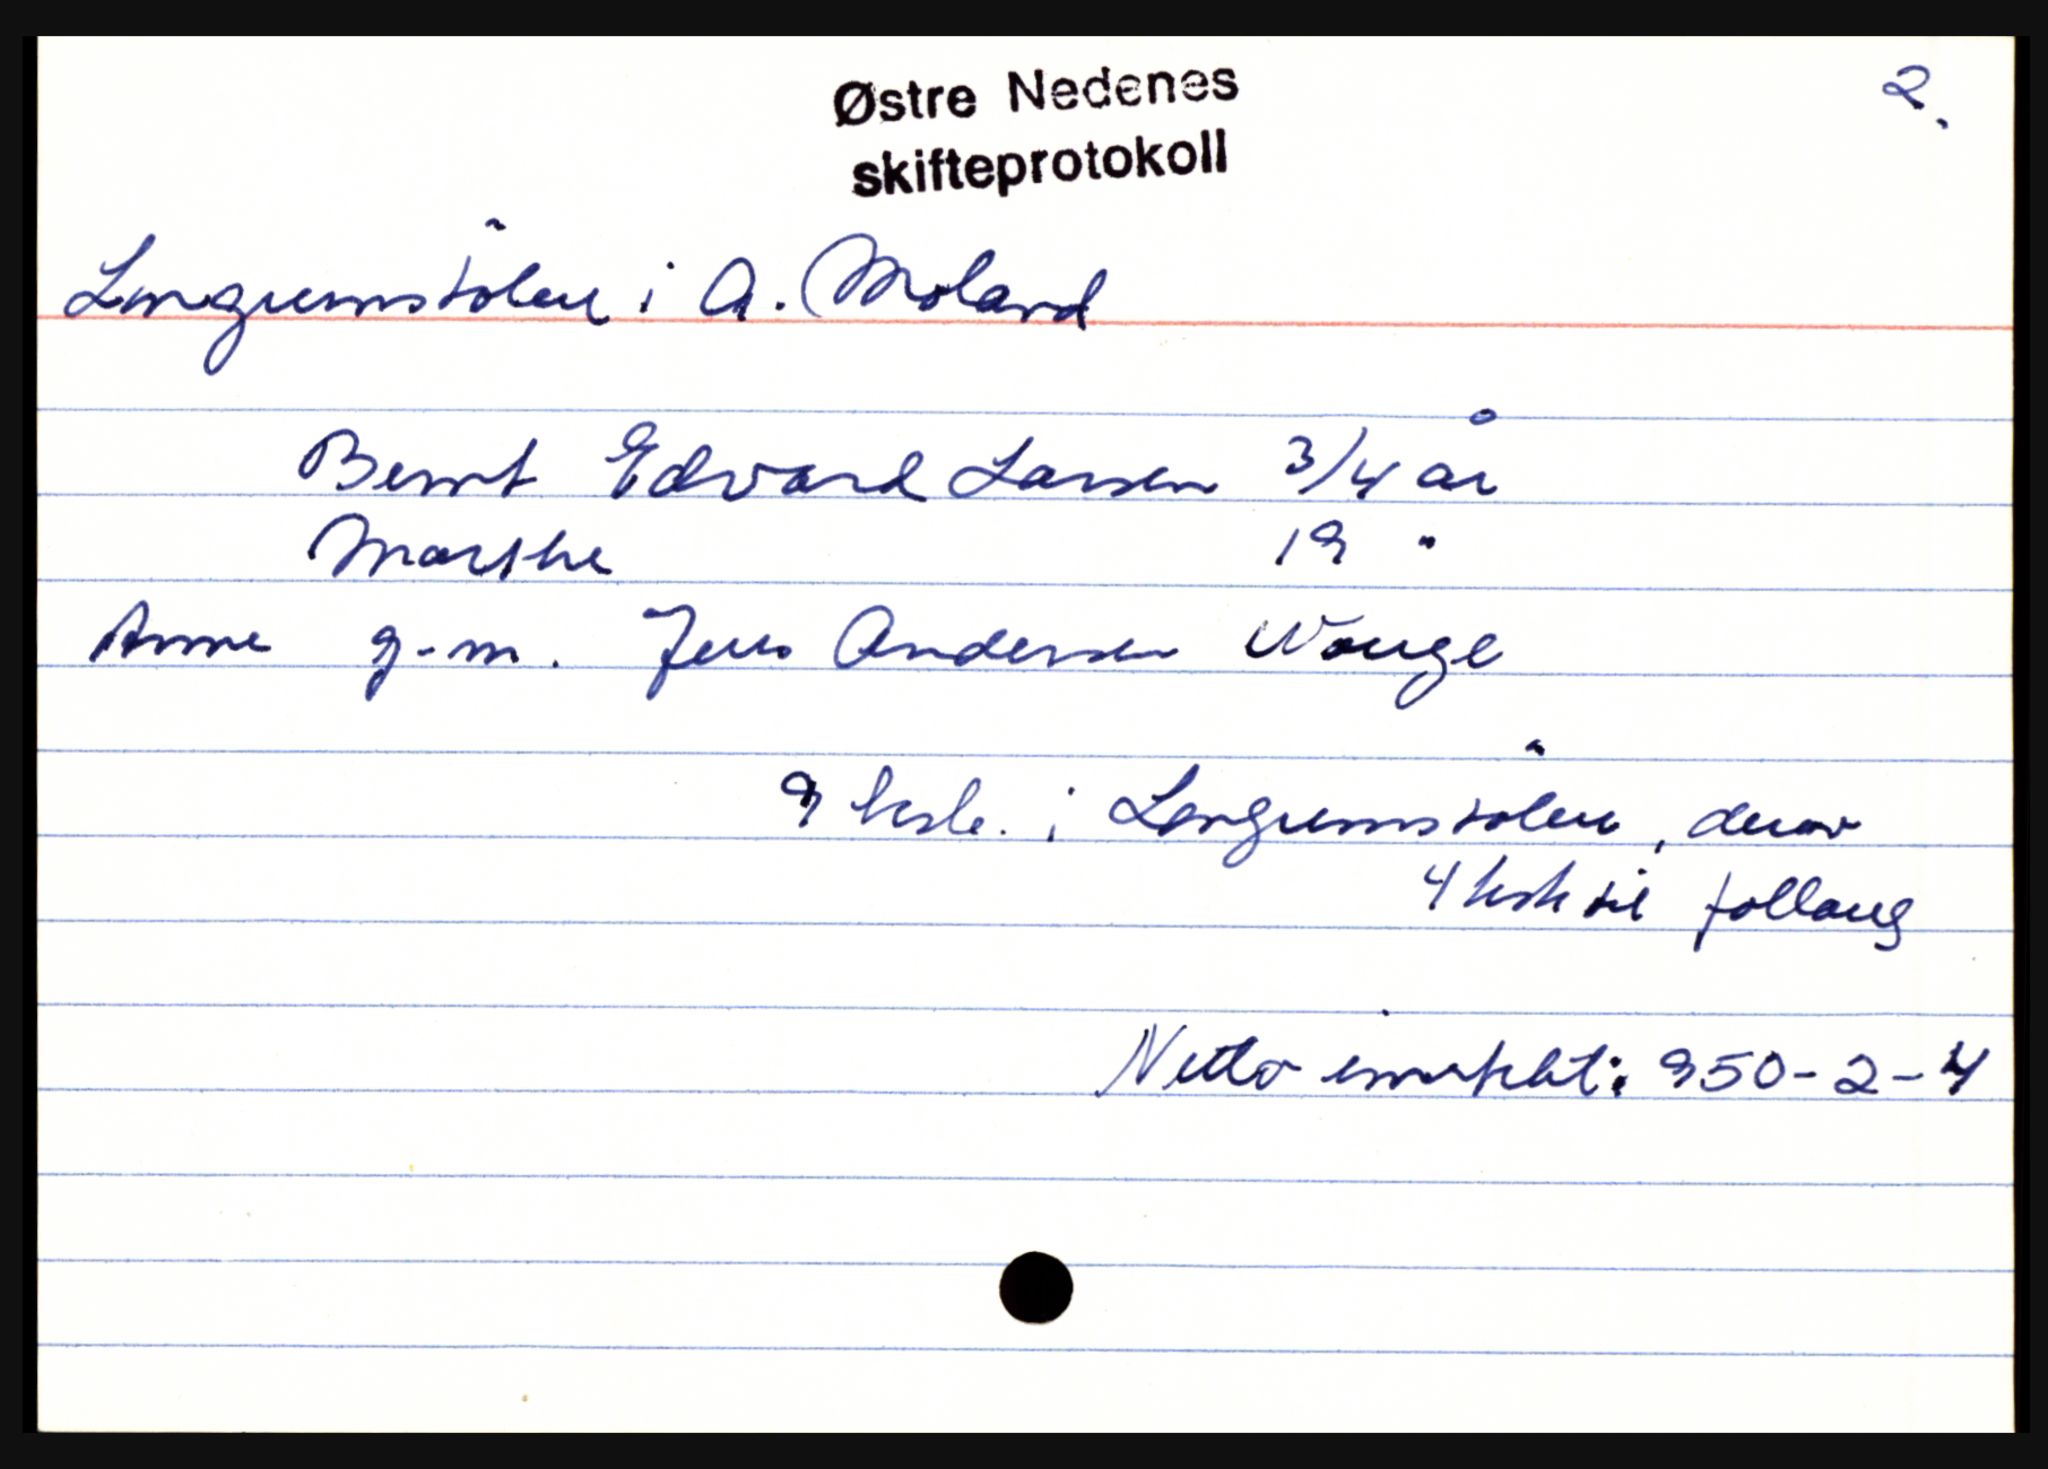 2.
Østre Nedenes
skifteprotokoll
Longumstølen i A. Moland
Bernt Edvard Larsen 3/4 år
Marthe 19 "
Anne g.m. Jens Andersen Wauge
9 kslr. i Longumstølen, derav
4 ksk til follaug
Netto innstekt: 950-2-4